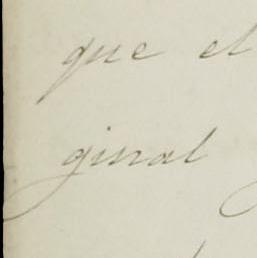 que el
ginal